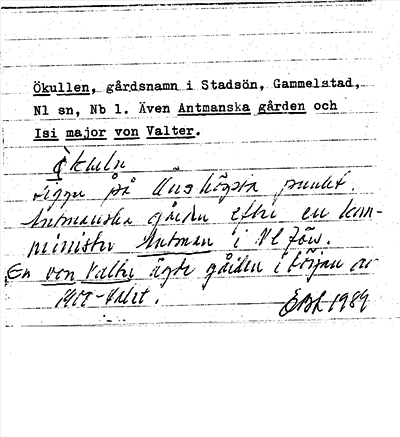 Ökullen, gårdsnamn i Stadsön, Gammelstad,
Nl sn, Nb l. Även Antmanska gården och
Isi major von Valter.
Ökulln
ligger på Öns högsta punkt.
Antmanska gården efter en kom-
minister Antman i Nl förs.
En von Valter ägde gården i början av
1900-talet.
EBL 1989